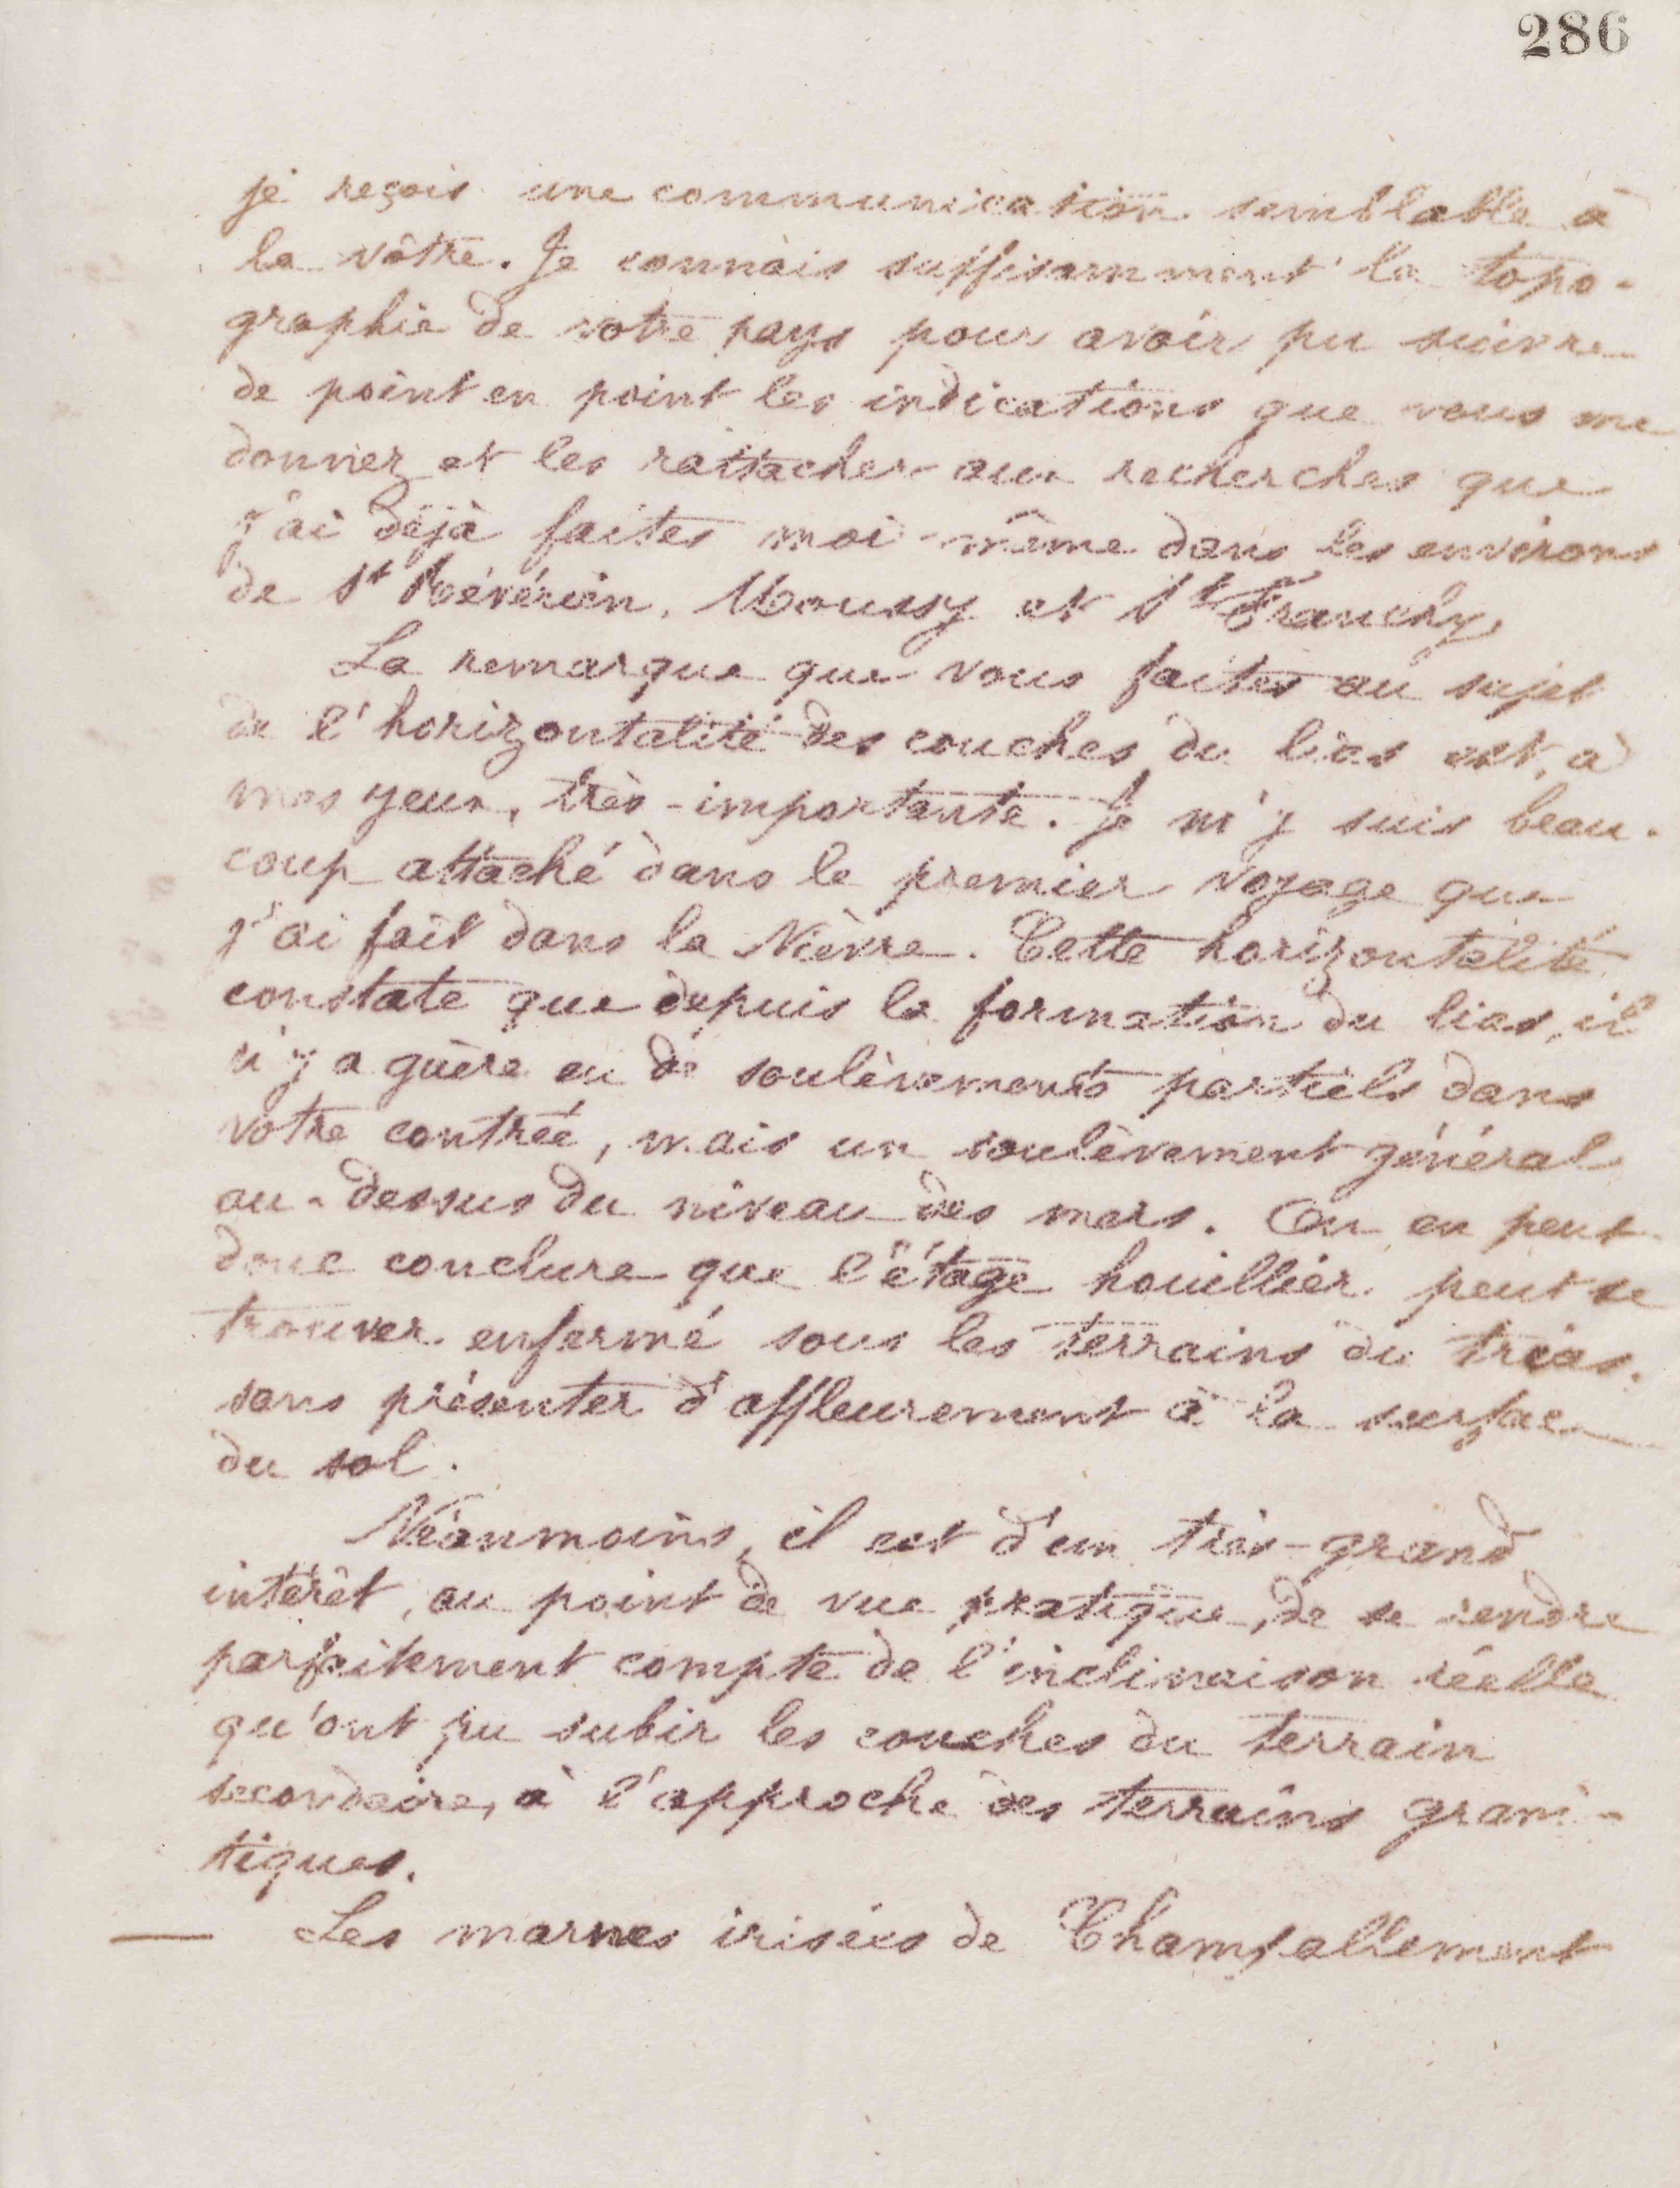 286
je reçois une communication semblable à
la vôtre. Je connais suffisamment la topo-
graphie de votre pays pour avoir pu suivre
de point en point les indications que vous me
donnez et les rattacher aux recherches que
j'ai déjà faites moi-même dans les environs
de St Révérien, Moussy et St Franchy.
La remarque que vous faites au sujet
de l'horizontalité des couches du lias est, à
mes yeux, très-importante. Je m'y suis beau-
coup attaché dans le premier voyage que
j'ai fait dans la Nièvre. Cette horizontalité
constate que depuis la formation du lias, il
n'y a guère eu de soulèvements partiels dans
votre contrée, mais un soulèvement général
au-dessus du niveau des mers. On en peut
donc conclure que l'étage houillier peut se
trouver enfermé sous les terrains du trias,
sans présenter d'affleurement à la surface
du sol.
Néanmoins, il est d'un très-grand
intérêt, au point de vue pratique, de se rendre
parfaitement compte de l'inclinaison réelle
qu'ont pu subir les couches du terrain
secondaire, à l'approche des terrains grani-
tiques.
— Les marnes irisées de Champallement